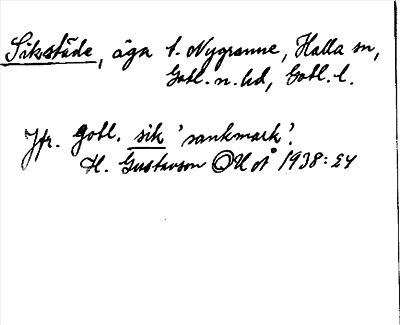 Sikstäde, äga t. Nygranne, Halla sn,
Gotl. n. hd, Gotl. l.
Jfr. Gotl. sik 'sankmark'.
H. Gustavson OUoÅ 1938: 24